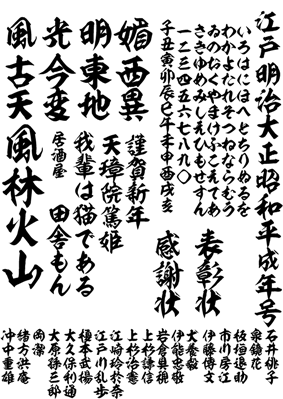 江戸明治大正昭和平成年号
いろはにほへとちりぬるを
わかよたれそつねならむう
ゐのおくやまけふこえてあ
さきゆめみしゑひもせすん
一二三四五六七八九〇
子丑寅卯辰巳午未申酉戌亥
媚西異
明東地
光今変
風古天
謹賀新年
天璋院篤姫
我輩は猫である
居酒屋
田舎もん
風林火山
表彰状
感謝状
石井桃子
泉鏡花
板垣退助
市川房江
伊藤博文
犬養毅
伊能忠敬
岩倉具視
上杉謙信
上杉治憲
江崎玲於奈
江戸川乱歩
榎本武揚
大久保利通
大原孫三郎
岡潔
緒方洪庵
沖中重雄